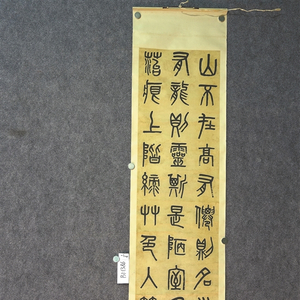 山不在高有僊則名
有龍則靈斯是陋室
菭痕上階綠艸色入